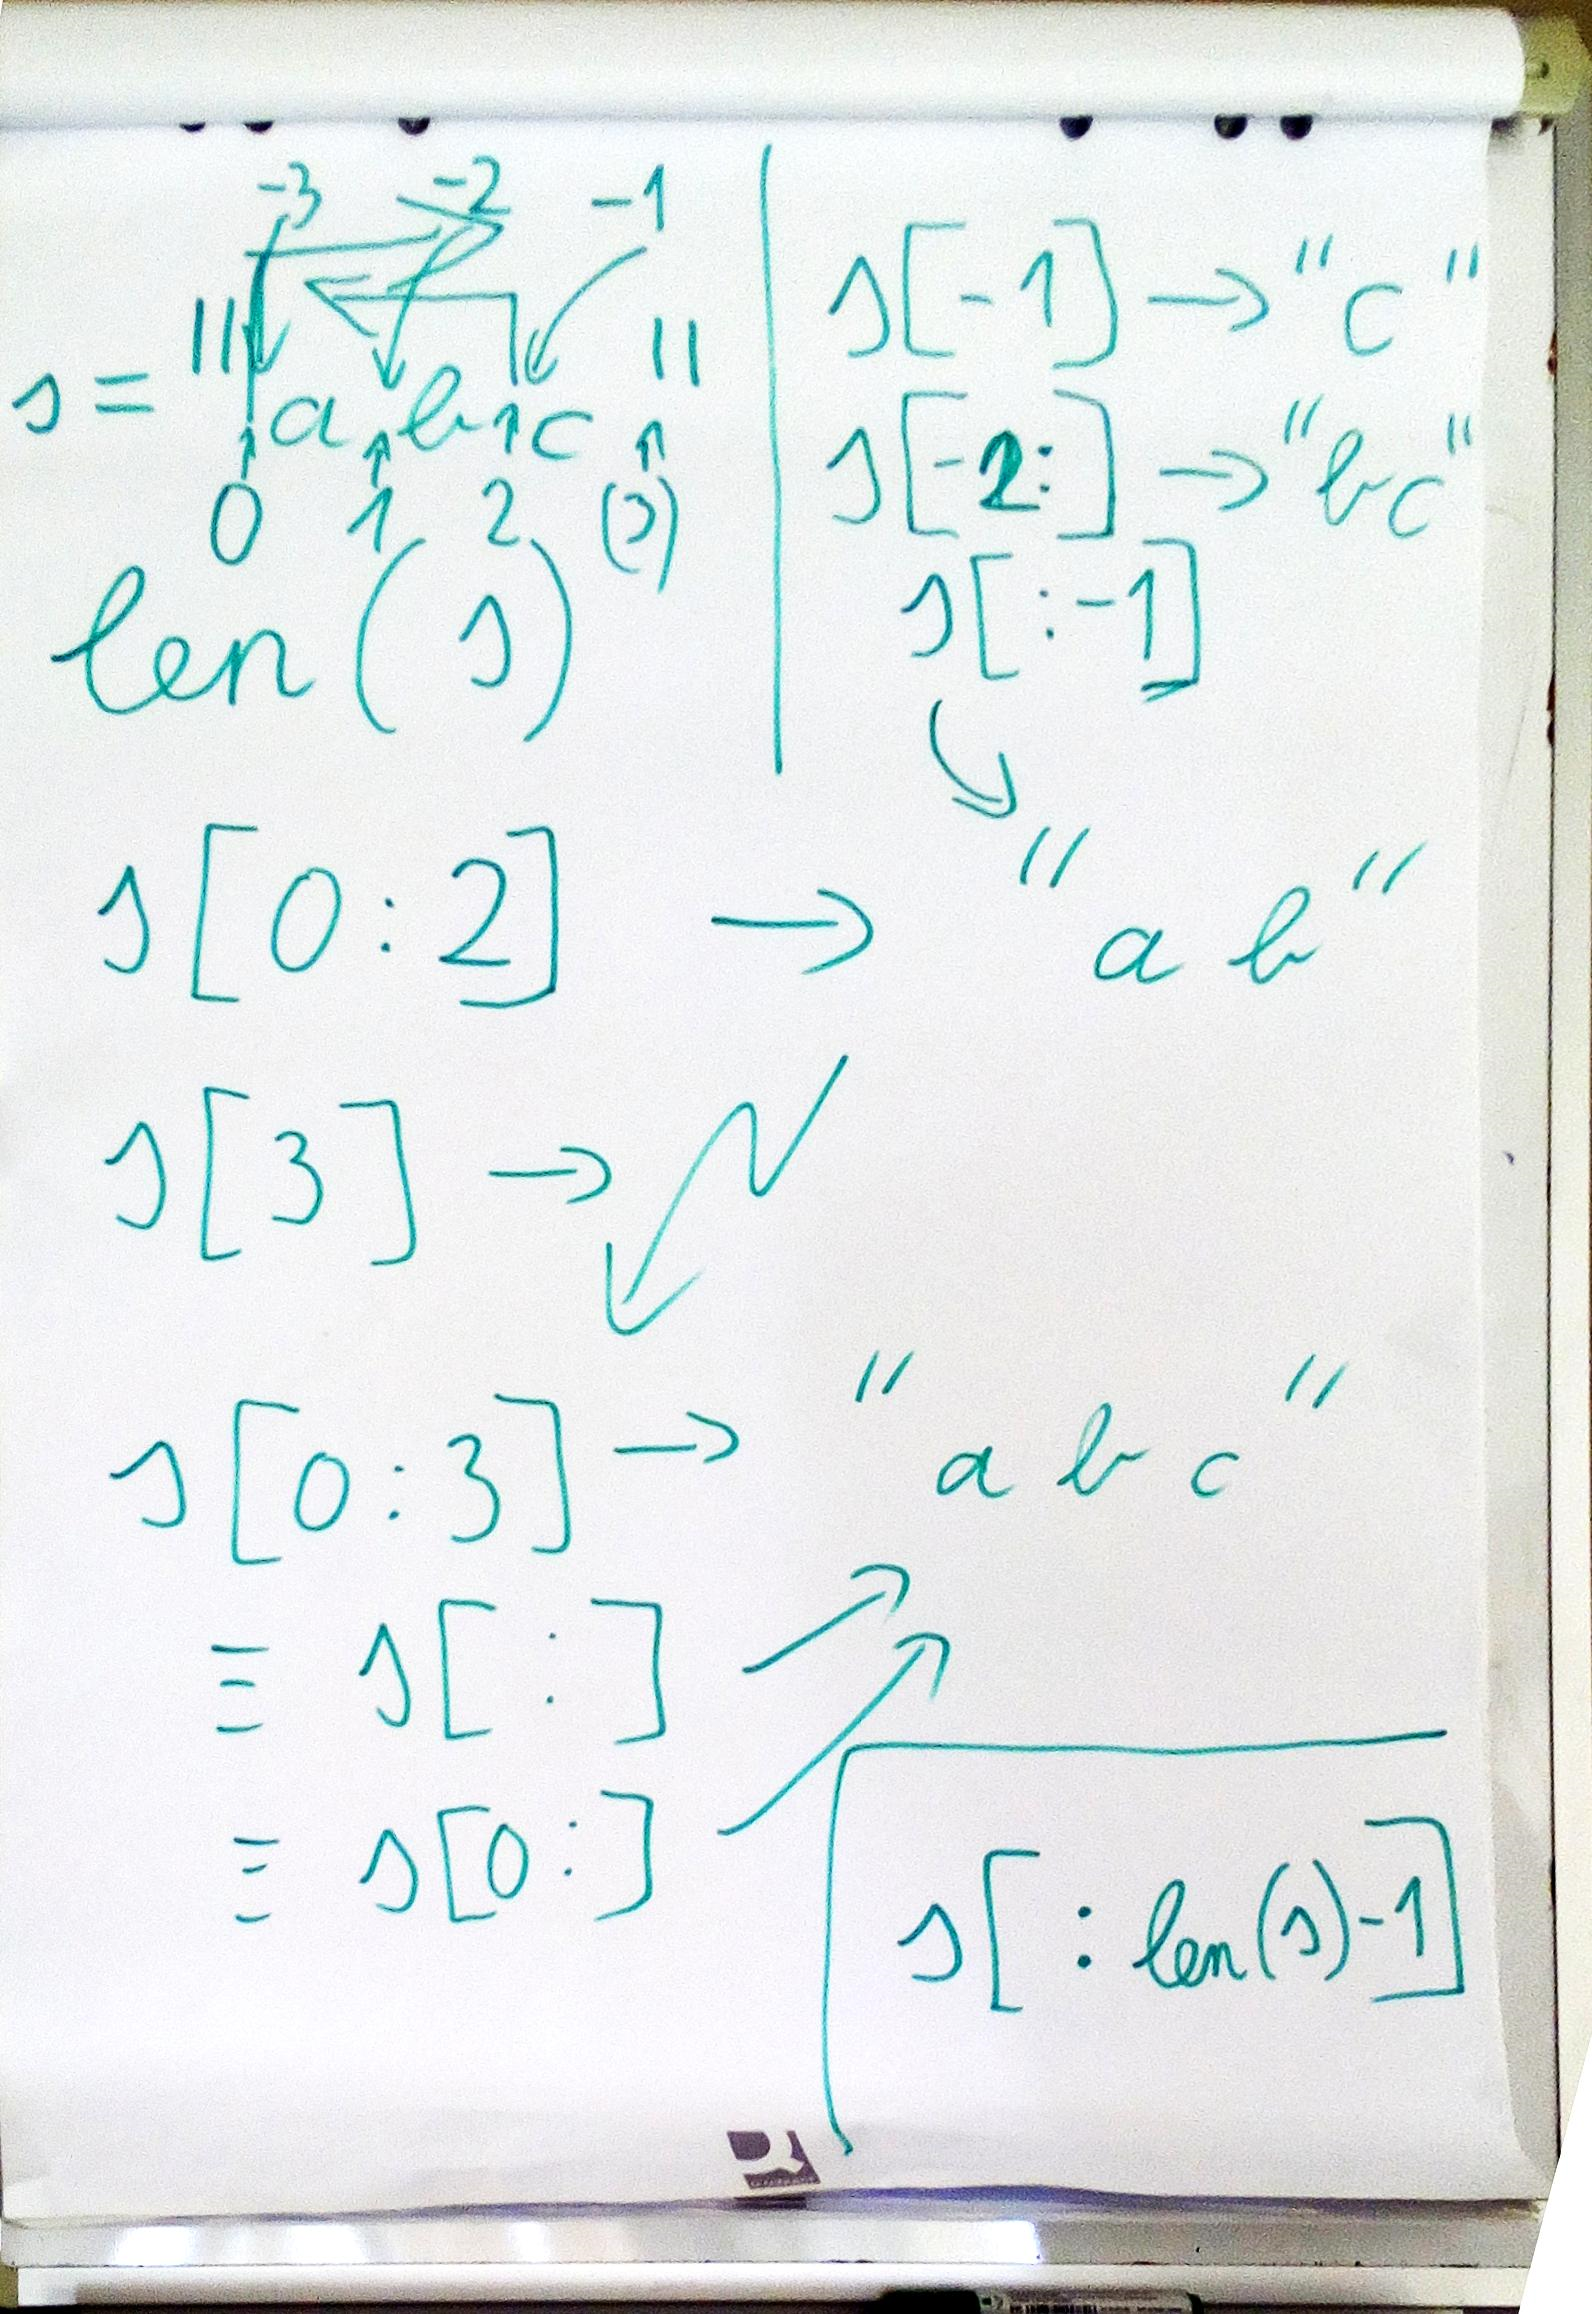 -3 -2 -1
s = "abc"
0 1 2 (3)
len(s)
s[-1] → "c"
s[-2:] → "bc"
s[:-1]
s[0:2] → "ab"
s[3] →
s[0:3] → "abc"
≡ s[:]
≡ s[0:]
s[:len(s)-1]